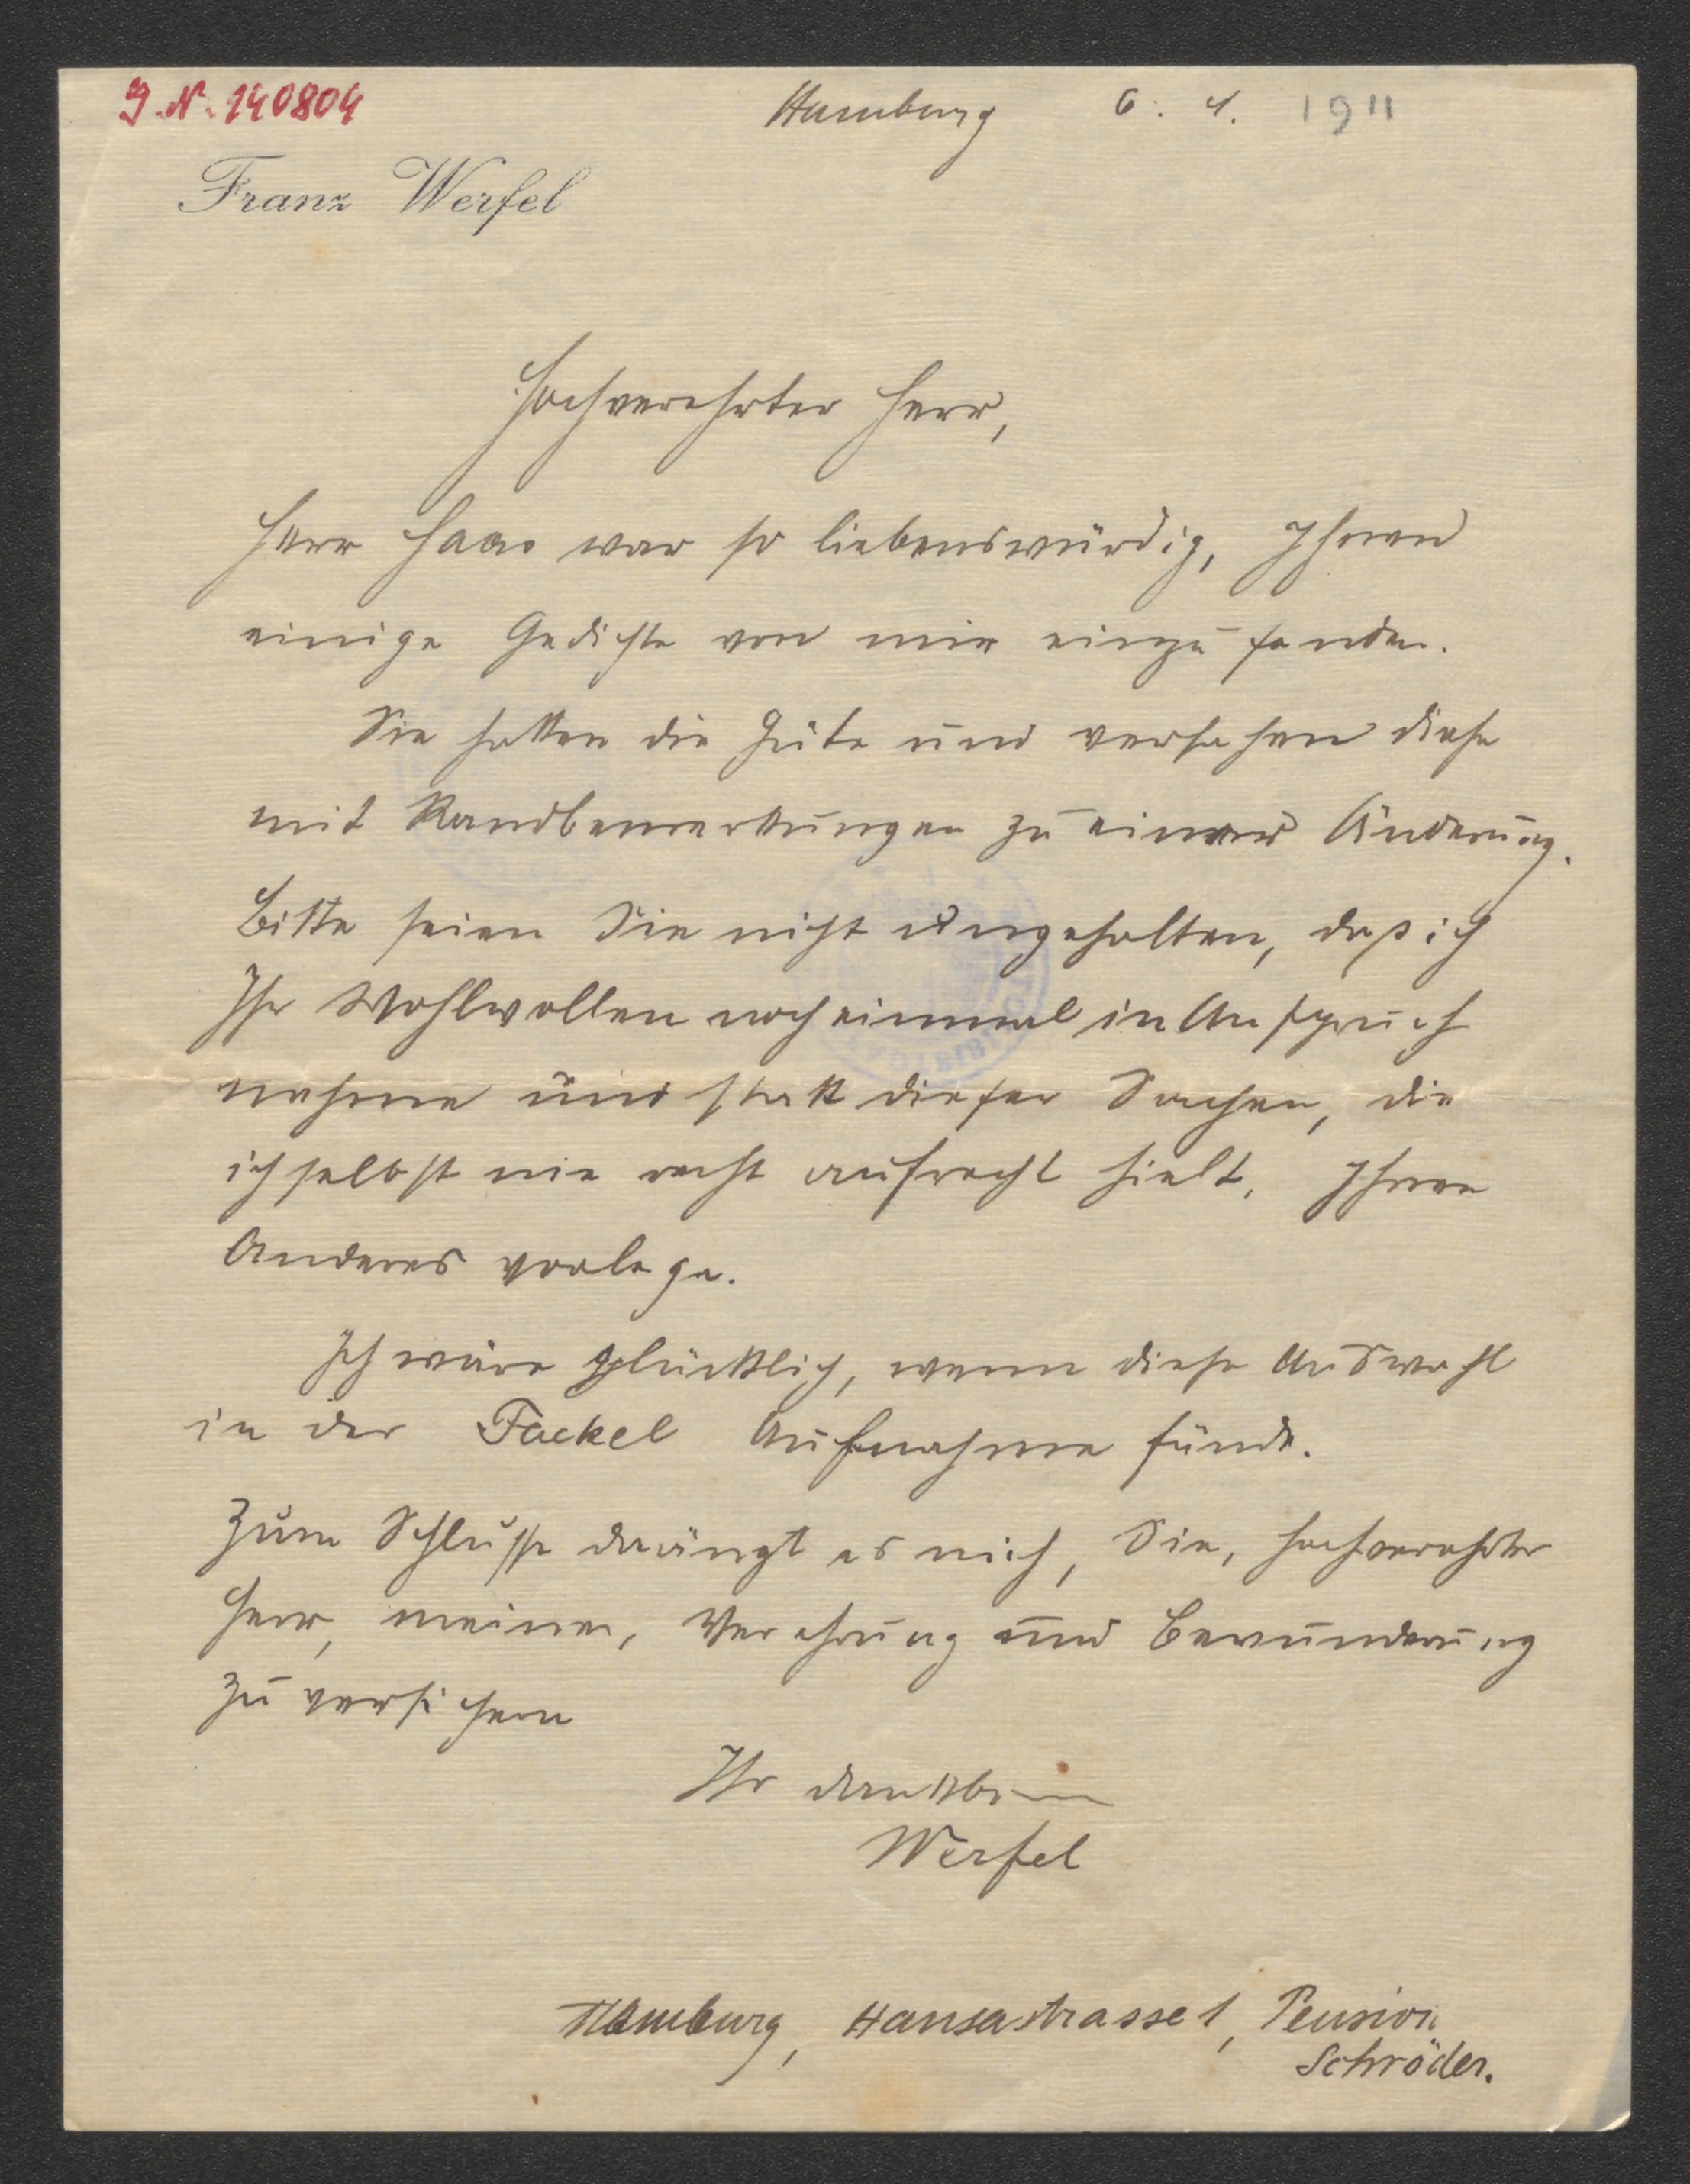 J.N. 140804
Hamburg 6. 4. 1911
Franz Werfel
Hochverehrter Herr,
Herr Haas war so liebenswürdig, Ihnen
einige Gedichte von mir einzusenden.
Sie hatten die Güte und versahen diese
mit Randbemerkungen zu einer Änderung.
Bitte seien Sie nicht ungehalten, daß ich
Ihr Wohlwollen noch einmal in Anspruch
nehme und statt dieser Sachen, die
ich selbst nie recht aufrecht hielt, Ihnen
Anderes vorlege.
Ich wäre glücklich, wenn diese Auswahl
in der Fackel Aufnahme fände.
Zum Schlusse drängt es mich, Sie, hochverehrter
Herr, meiner, Verehrung und Bewunderung
zu versichern
Ihr dankbarer
Werfel
Hamburg, Hansastrasse 1, Pension
Schröder.